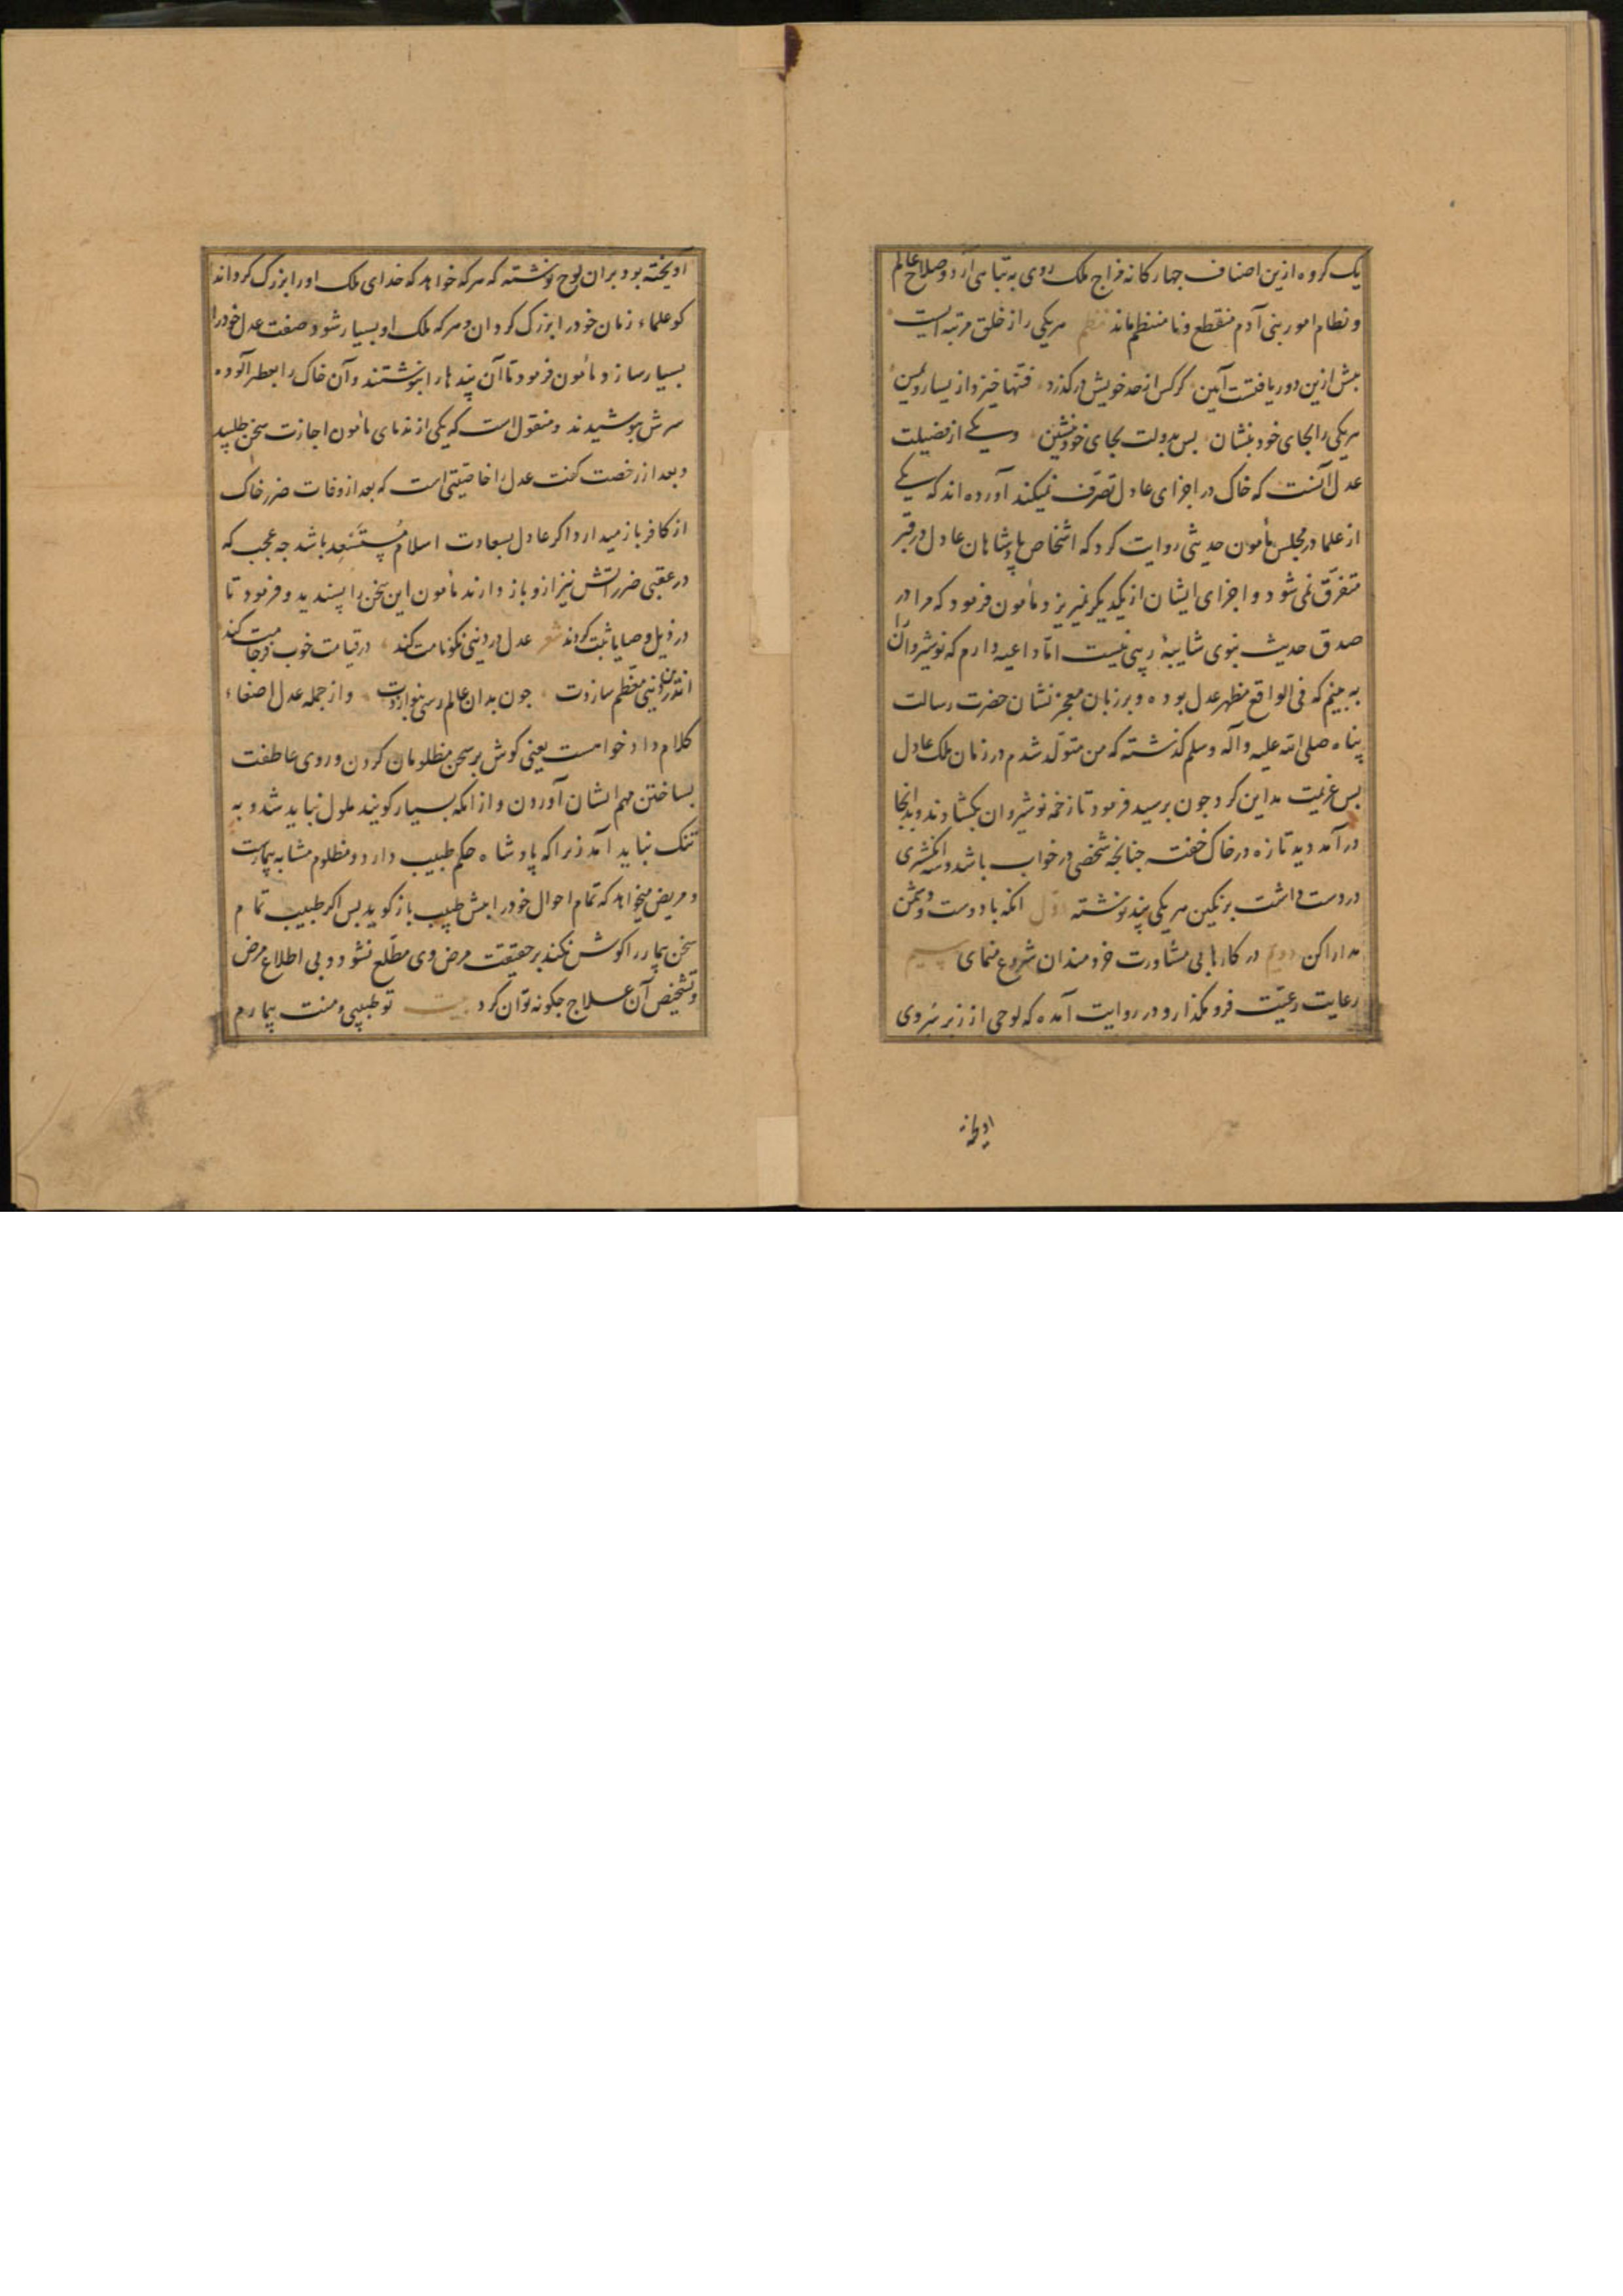 یک کروه ازین اصناف جهارکانه مزاج ملک روی به تباهی آرد و صلاح عالم
و نظام امور بنی آدم منقطع و نا منتظم ماند نظم هریکی را ز خلق مرتبه ایست
بیش ازین دور یافتست آیین کر کس از حد خویش درکذرد فتنها خیزد از یسار و یمین
هریکی را بجای خود بنشان بس بدولت بجای خود بنشین و یکی از فضیلت
عدل آنست که خاک در اجزای عادل تصرف نمیکند آورده اند که یکی
از علما در مجلس مأمون حدیثی روایت کرد که اشخاص پادشاهان عادل در قبر
متفرق نمی شود و اجزای ایشان از یکدیکر نمیریزد مأمون فرمود که مرا در
صدق حدیث نبوی شایبهٔ ریبی نیست اما داعیه دارم که نوشیروان را
به بینم که فی الواقع مظهر عدل بوده و بر زبان معجز نشان حضرت رسالت
پناه صلی الله علیه وآله وسلم کذشته که من متولد شدم در زمان ملک عادل
بس عزیمت مداین کرد جون برسید فرمود تا زخمه نوشیروان بکشادند و بدانجا
درآمد دید تازه در خاک خفته جنانجه شخصی در خواب باشد و سه انکشتری
در دست داشت بر نکین هریکی پند نوشته اول انکه با دوست و دشمن
مدارا کن دویم در کارها بی مشاورت خردمندان شروع منمای سیم
رعایت رعیت فرو مکذار و در روایت آمده که لوحی از زبر سروی
اویخته
اویخته بود بران لوح نوشته که هرکه خواهد که خدای ملک اورا بزرک کرداند
کو علماء زمان خود را بزرک کردان و هرکه ملک او بسیار شود صفت عدل خود را
بسیار سازد مأمون فرمود تا آن پندها را بنوشتند و آن خاک را بعطر آلوده
سرش بپوشیدند و منقول است که یکی از ندمای مأمون اجازت سخن طلبید
و بعد از رخصت کفت عدل را خاصیتی است که بعد از وفات ضرر خاک
از کافر باز میدارد اکر عادل بسعادت اسلام مستسعد باشد جه عجب که
در عقبی ضرر آتش نیز ازو باز دارند مأمون این سخن را پسندید و فرمود تا
در ذیل وصایا ثبت کردند شعر عدل در دنیی نکونامت کند در قیامت خوب فرجامت کند
اندرین دنیی معظم سازدت جون بدان عالم رسی بنوازدت و از جمله عدل اصغاء
کلام دادخواهست یعنی کوش بر سخن مظلومان کردن و روی عاطفت
بساختن مهم ایشان آوردن و از انکه بسیار کویند ملول نباید شد و به
تنک نباید آمد زیرا که پادشاه حکم طبیب دارد و مظلوم مشابه بیمارست
و مریض میخواهد که تمام احوال خود را بیش طبیب باز کوید بس اکر طبیب تمام
سخن بیمار را کوش نکند بر حقیقت مرض وی مطلع نشود و بی اطلاع مرض
و تشخیص آن علاج جکونه توان کرد بیت تو طبیبی و منت بیمارم